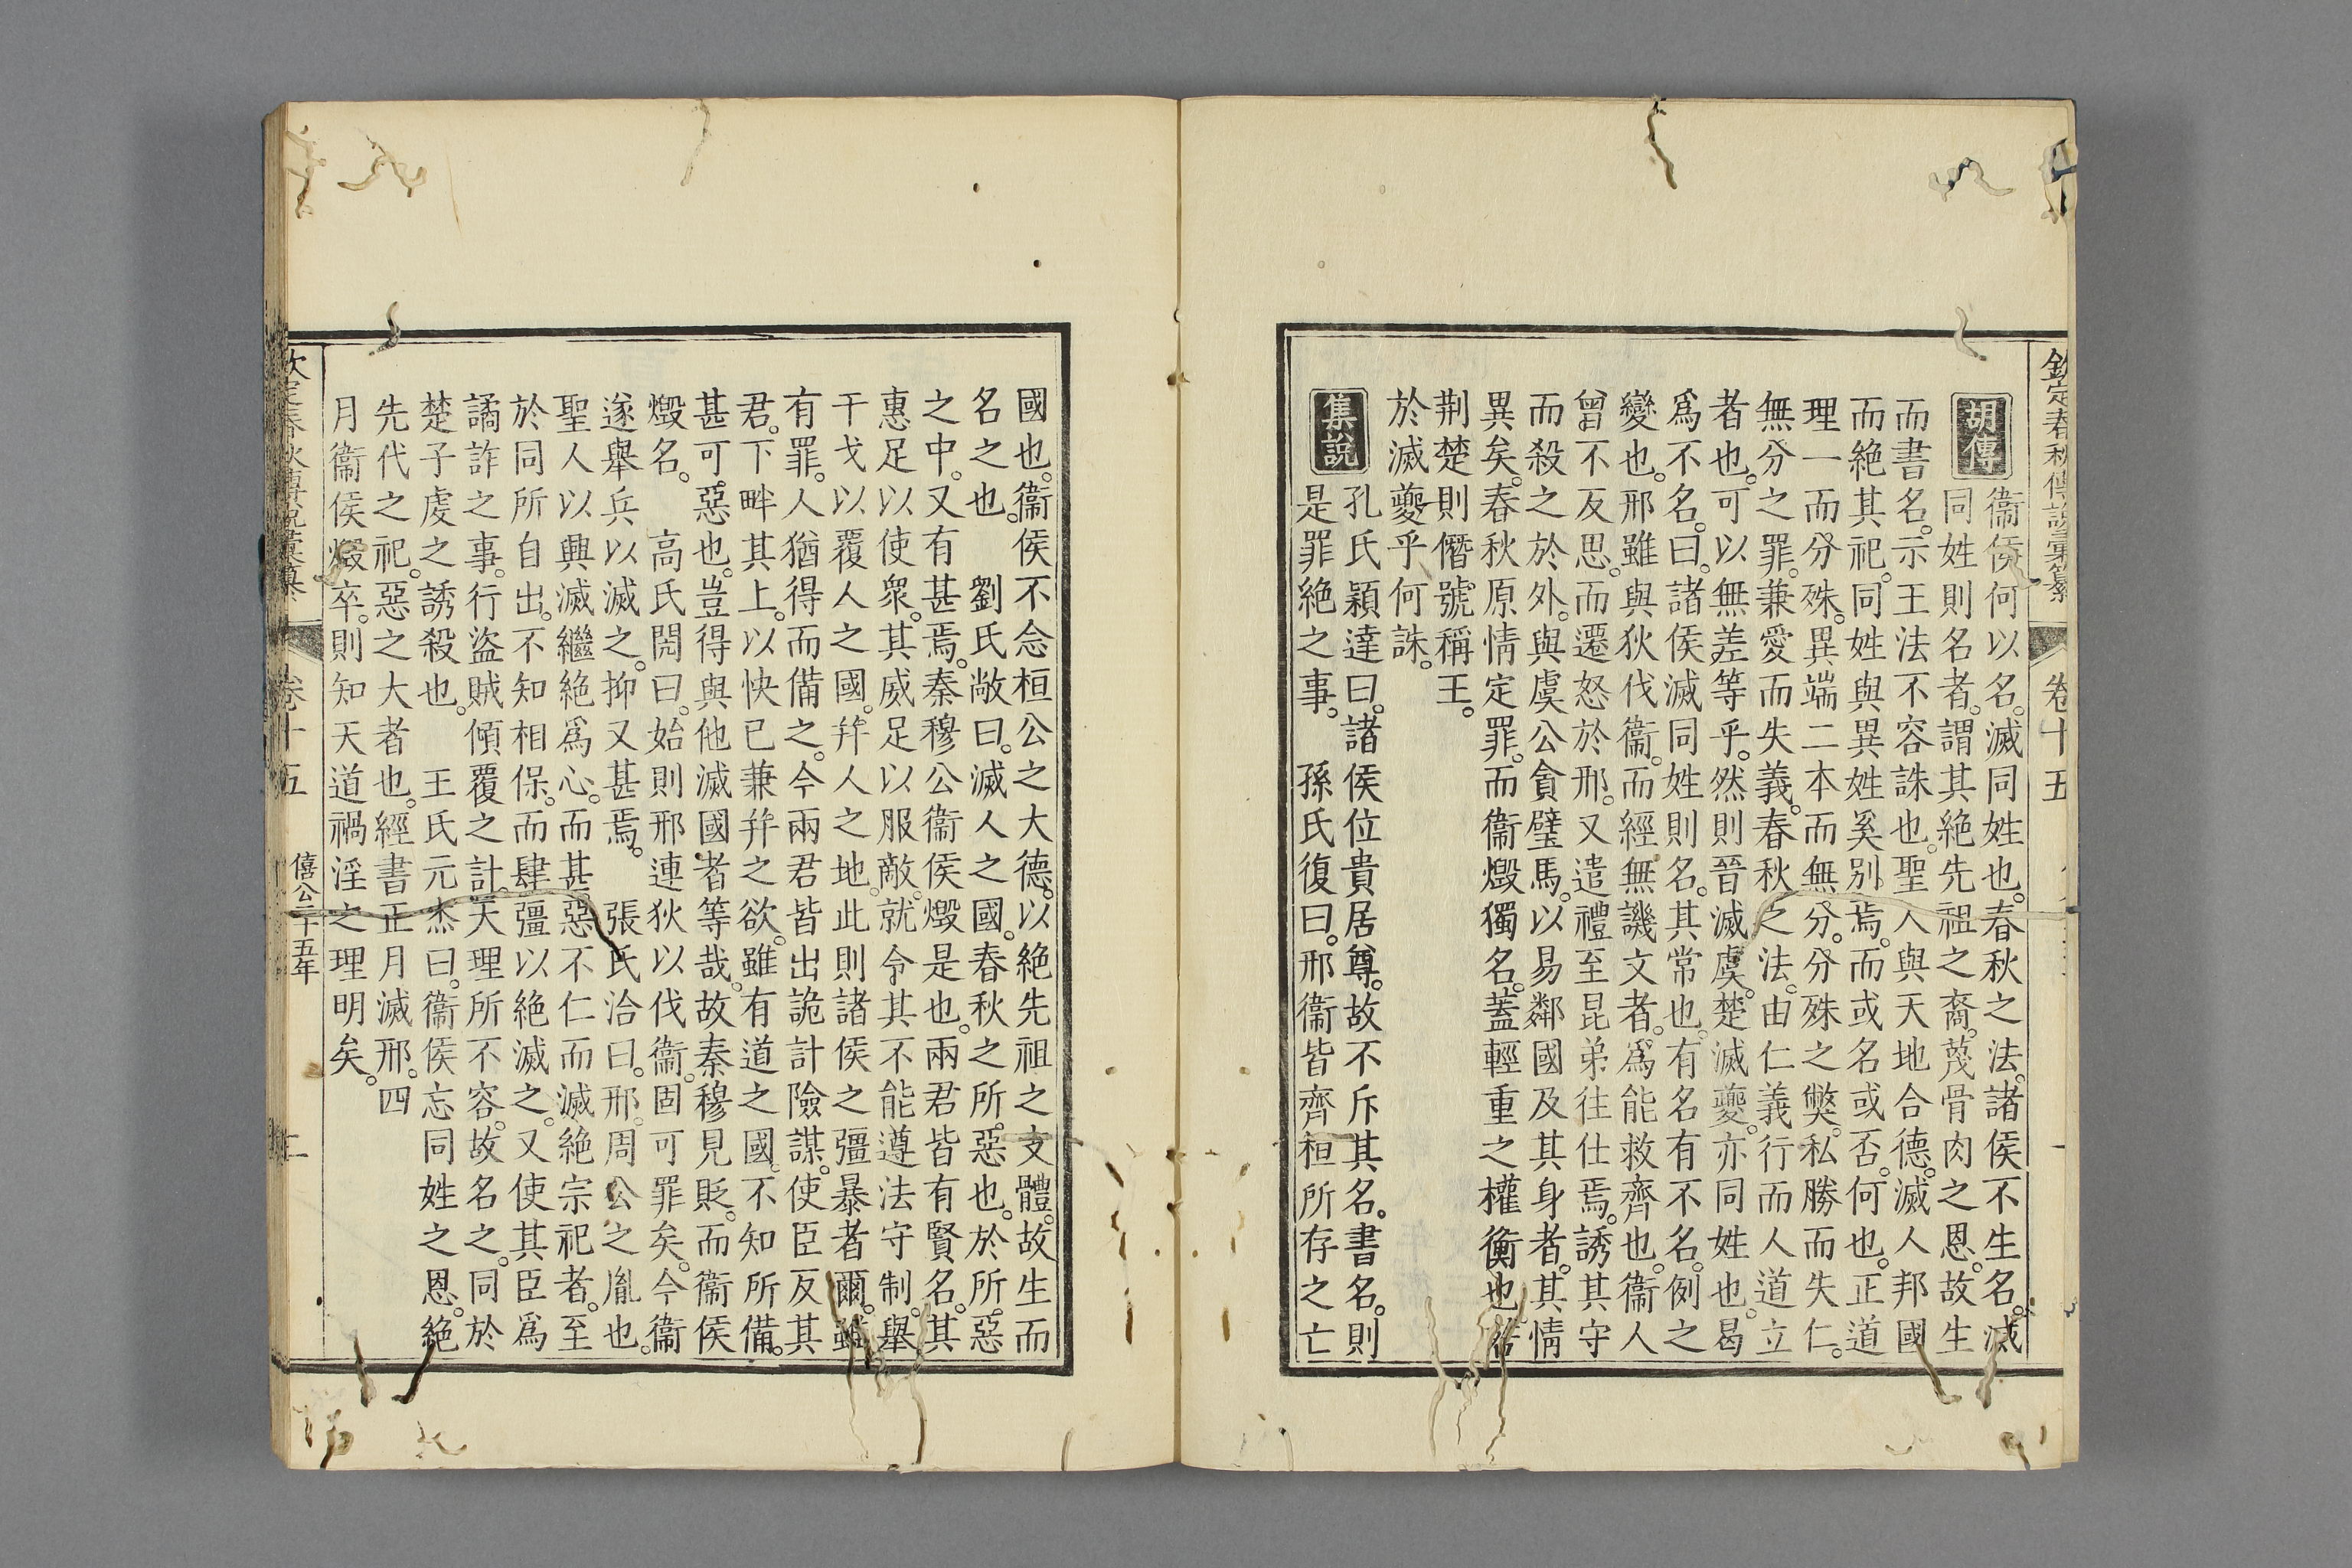 欽定春秋傳說彙纂 卷十五
胡傳
衞侯何以名。滅同姓也。春秋之法。諸侯不生名。滅
同姓則名者。謂其絶先祖之裔。蔑骨肉之恩。故生
而書名。示王法不容誅也。聖人與天地合德。滅人邦國
而絶其祀。同姓與異姓奚别焉。而或名或否。何也。正道
理一而分殊。異端二本而無分。分殊之獘。私勝而失仁。
無分之罪。兼愛而失義。春秋之法。由仁義行而人道立
者也。可以無差等乎。然則晉滅虞。楚滅夔。亦同姓也。曷
爲不名。曰。諸侯滅同姓則名。其常也。有名有不名。例之
變也。邢雖與狄伐衞。而經無譏文者。爲能救齊也。衞人
曾不反思。而遷怒於邢。又遣禮至昆弟往仕焉。誘其守
而殺之於外。與虞公貪璧馬。以易鄰國及其身者。其情
異矣。春秋原情定罪。而衞燬獨名。蓋輕重之權衡也。若
荆楚則僭號稱王。
於滅夔乎何誅。
集說
孔氏穎達曰。諸侯位貴居尊。故不斥其名。書名。則
是罪絶之事。 孫氏復曰。邢衞皆齊桓所存之亡
國也。衞侯不念桓公之大德。以絶先祖之支體。故生而
名之也。 劉氏敞曰。滅人之國。春秋之所惡也。於所惡
之中。又有甚焉。秦穆公衞侯燬是也。兩君皆有賢名。其
惠足以使衆。其威足以服敵。就令其不能遵法守制。舉
干戈以覆人之國。幷人之地。此則諸侯之彊暴者爾。雖
有罪。人猶得而備之。今兩君皆出詭計險謀。使臣反其
君。下畔其上。以快已兼幷之欲。雖有道之國。不知所備。
甚可惡也。豈得與他滅國者等哉。故秦穆見貶。而衞侯
燬名。 高氏閌曰。始則邢連狄以伐衞。固可罪矣。今衞
遂舉兵以滅之。抑又甚焉。 張氏洽曰。邢。周公之胤也。
聖人以興滅繼絶爲心。而甚惡不仁而滅絶宗祀者。至
於同所自出。不知相保。而肆彊以絶滅之。又使其臣爲
譎詐之事。行盗賊傾覆之計。天理所不容。故名之。同於
楚子虔之誘殺也。 王氏元杰曰。衞侯忘同姓之恩。絶
先代之祀。惡之大者也。經書正月滅邢。四
月衞侯燬卒。則知天道禍淫之理明矣。
欽定春秋傳說彙纂 卷十五 僖公二十五年 二